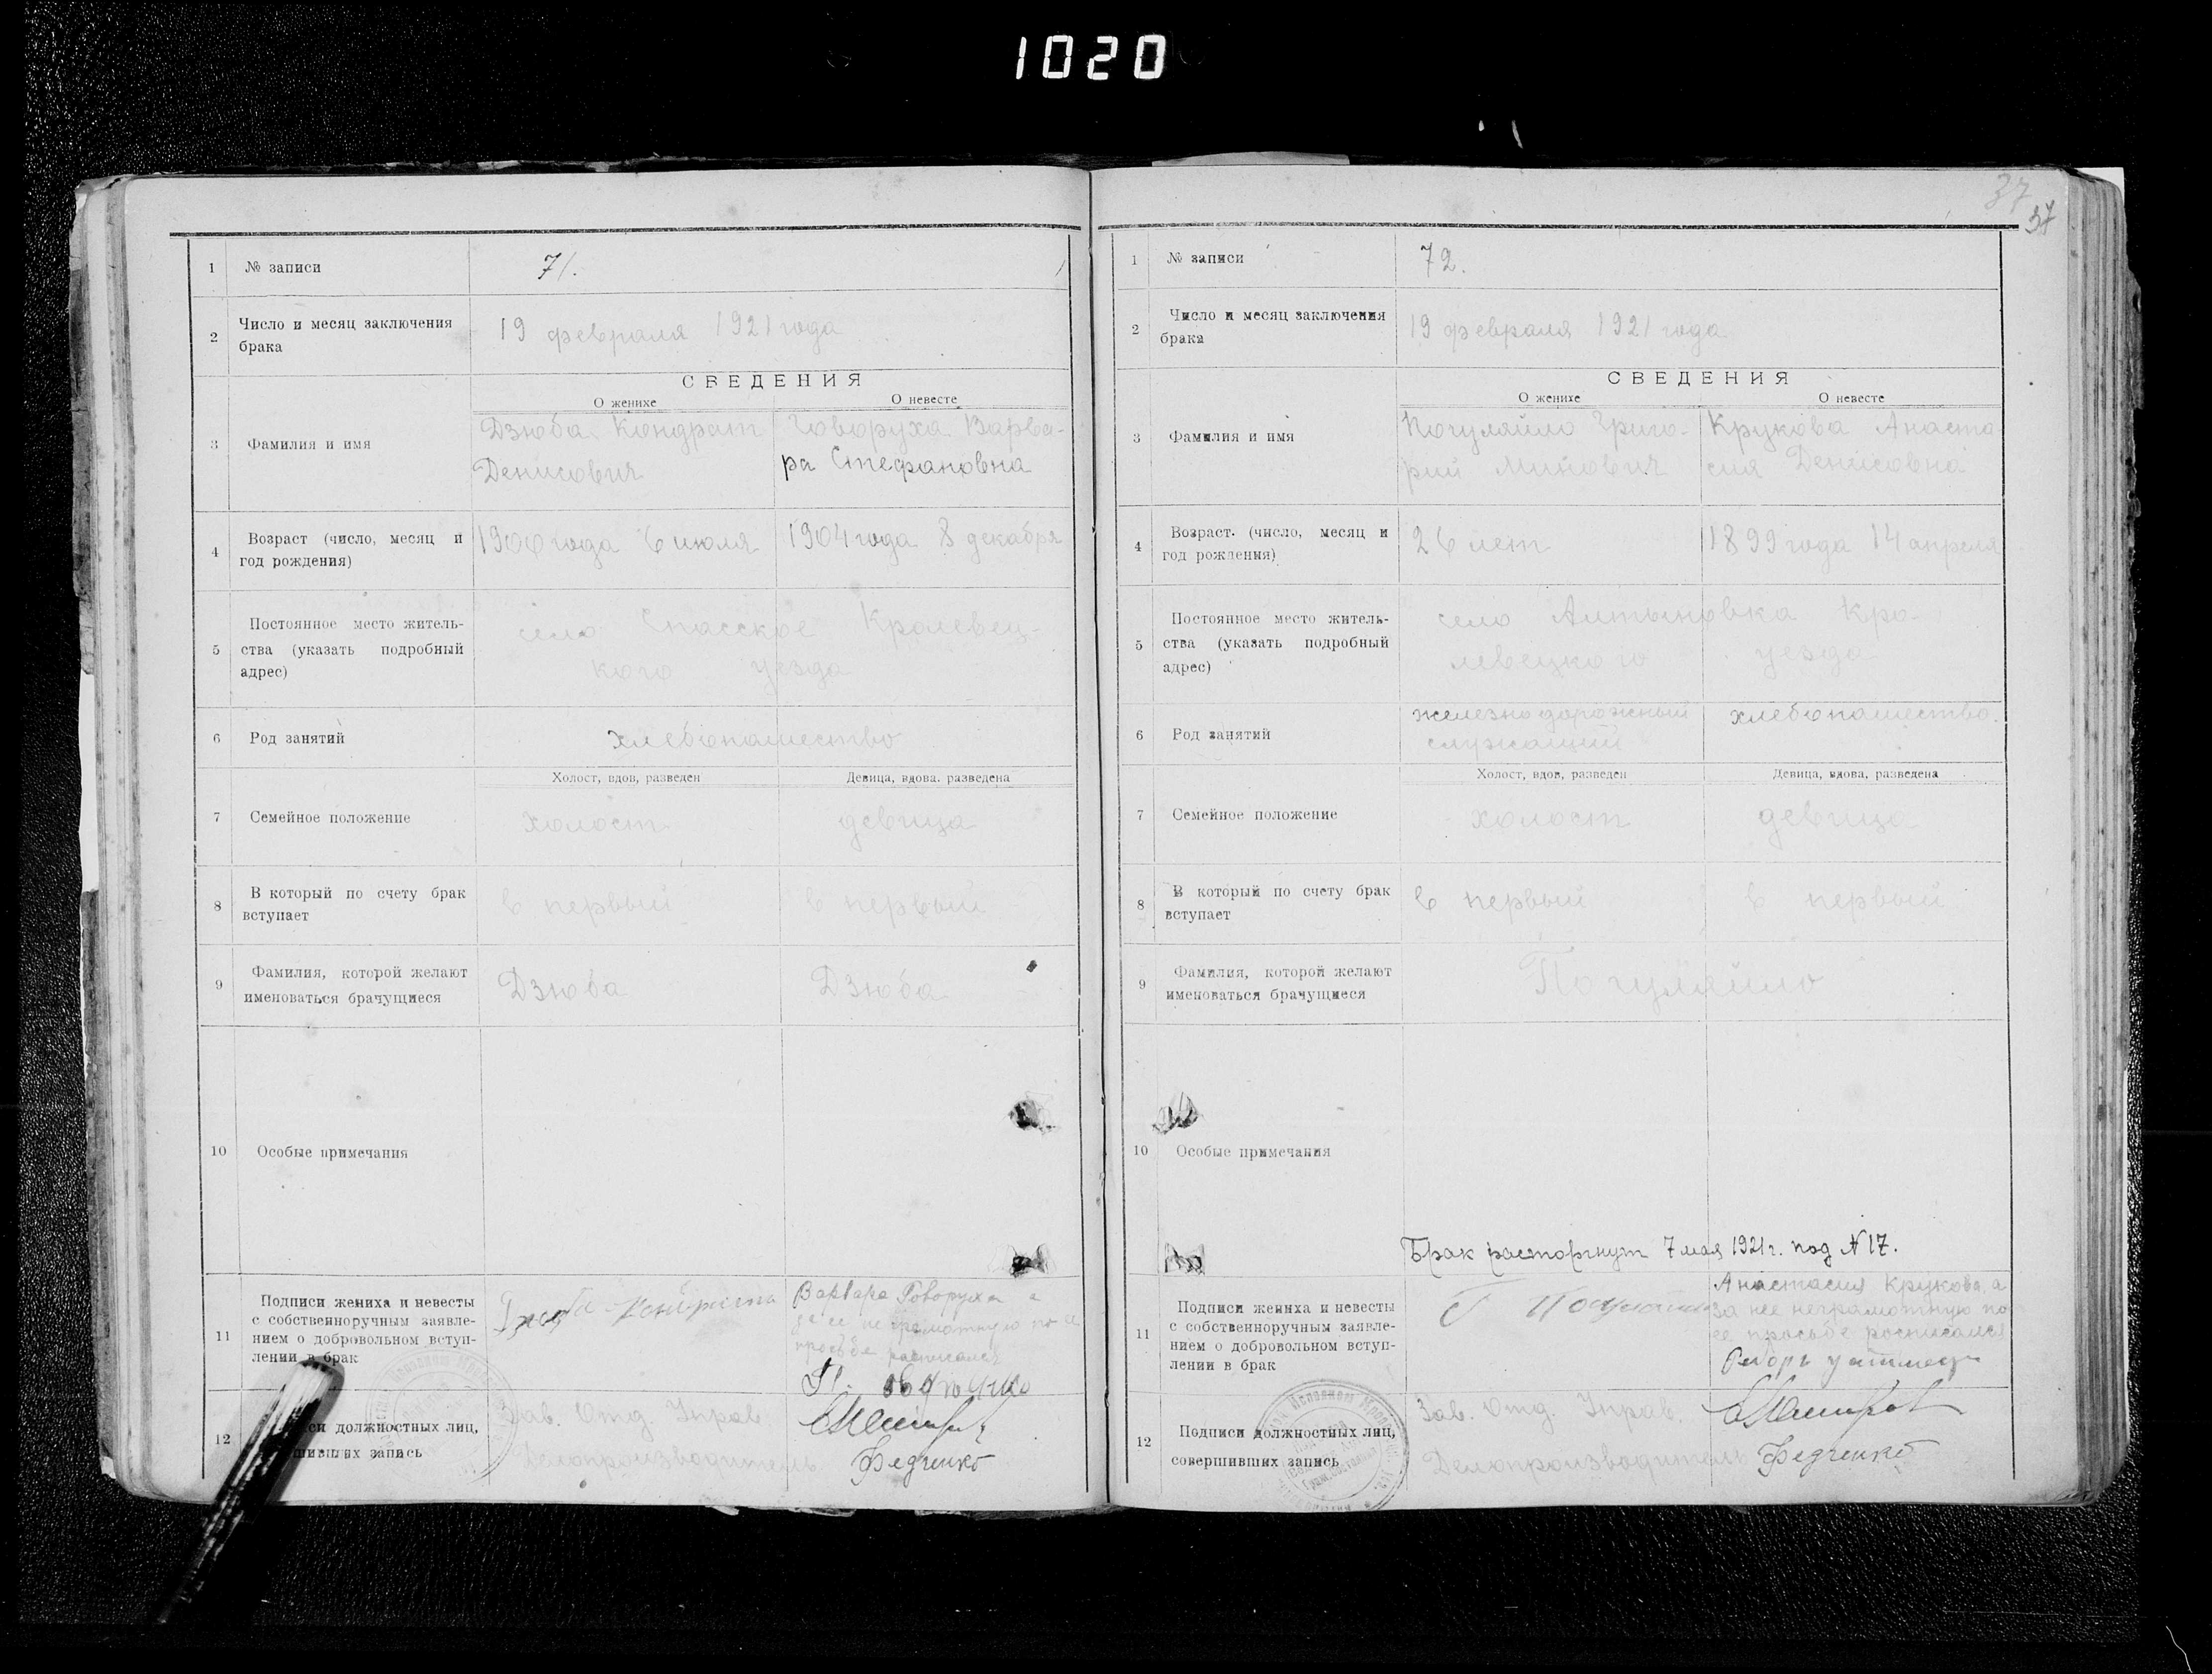 1020
1 № записи 71.
2 Число и месяц заключения
брака
19 февраля 1921 года
СВЕДЕНИЯ
О женихе О невесте
3 Фамилия и имя
Дзюба Кондрат Говоруха Варва-
Денисович ра Стефановна
4 Возраст (число, месяц и
год рождения)
1900 года 6 июля 1904 года 8 декабря
5 Постоянное место житель-
ства (указать подробный
адрес)
село Спасское Кролевец-
кого уезда
6 Род занятий хлебопашество
Холост, вдов, разведен Девица, вдова. разведена
7 Семейное положение холост девица
8 В который по счету брак
вступает
в первый в первый
9 Фамилия, которой желают
именоваться брачущиеся
Дзюба Дзюба
10 Особые примечания
11 Подписи жениха и невесты
с собственноручным заявле-
нием о добровольном вступ-
лении в брак
Варвара Говоруха а
за ее неграмотную по ее
просьбе расписался
12 должностных лиц,
запись
Зав. Отд. Управ.
Делопроизводитель Федченко
37
37
1 № записи 72.
2 Число и месяц заключения
брака
19 февраля 1921 года
СВЕДЕНИЯ
О женихе О невесте
3 Фамилия и имя
Погуляйло Григо- Крукова Анаста
рий Минович сия Денисовна
4 Возраст. (число, месяц и
год рождения)
26 лет 1899 года 14 апреля
5 Постоянное место житель-
ства (указать подробный
адрес)
село Алтыновка Кро-
левецкого уезда
6 Род занятий
железнодорожный хлебопашество.
служащий
Холост, вдов, разведен Девица, вдова, разведена
7 Семейное положение холост девица
8 В который по счету брак
вступает
в первый в первый
9 Фамилия, которой желают
именоваться брачущиеся
Погуляйло
10 Особые примечания
Брак расторгнут 7 мая 1921 г. под N 17.
11 Подписи жениха и невесты
с собственноручным заявле-
нием о добровольном вступ-
лении в брак
Анастасия Крукова, а
за нее неграмотную по
ее просьбе росписался
12 Подписи должностных лиц,
совершивших запись
Зав. Отд. Управ.
Делопроизводитель Федченко